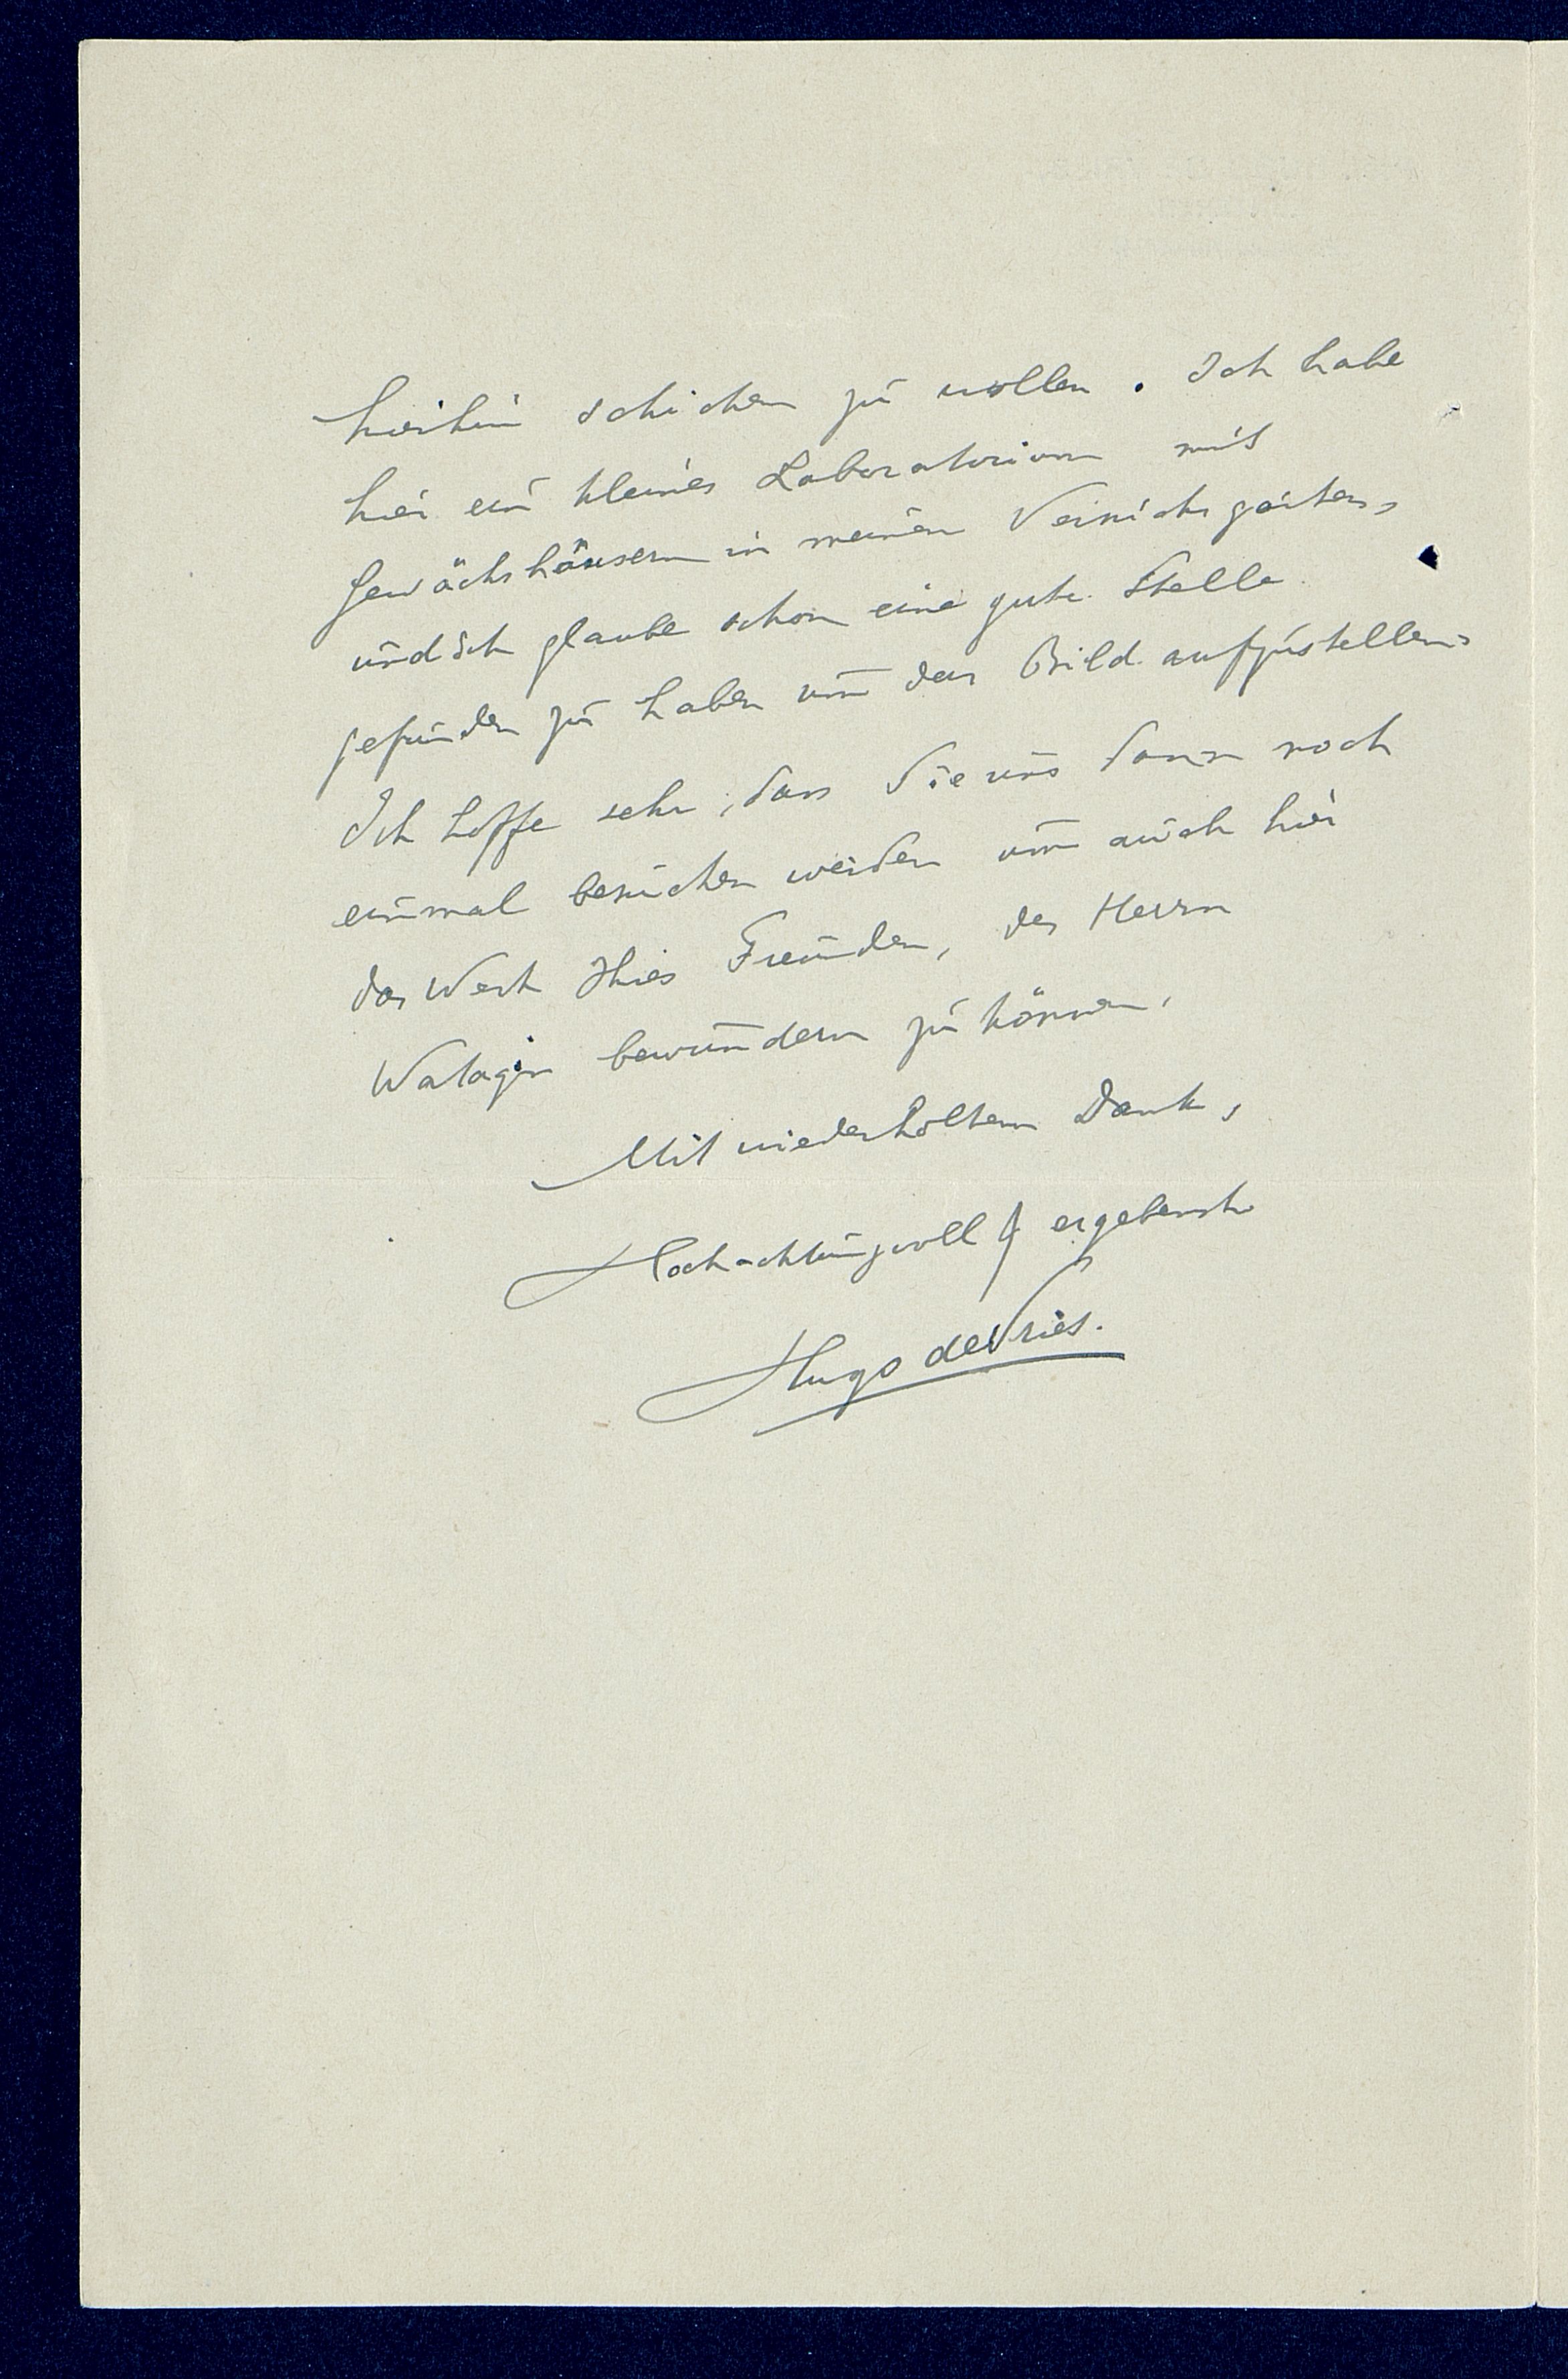 hierhin schicken zu wollen. Ich habe
hier ein kleines Laboratorium mit
Gewächshäusern in meinen Versuchsgarten,
und ich glaube schon eine gute Stelle
gefunden zu haben um das Bild aufzustellen.
Ich hoffe sehr, dass Sie uns dann noch
einmal besuchen werden um auch hier
das Werk Ihres Freundes, des Herrn
Watagin bewundern zu können.
Mit wiederholtem Dank,
Hochachtungsvoll & ergebenst
Hugo de Vries.